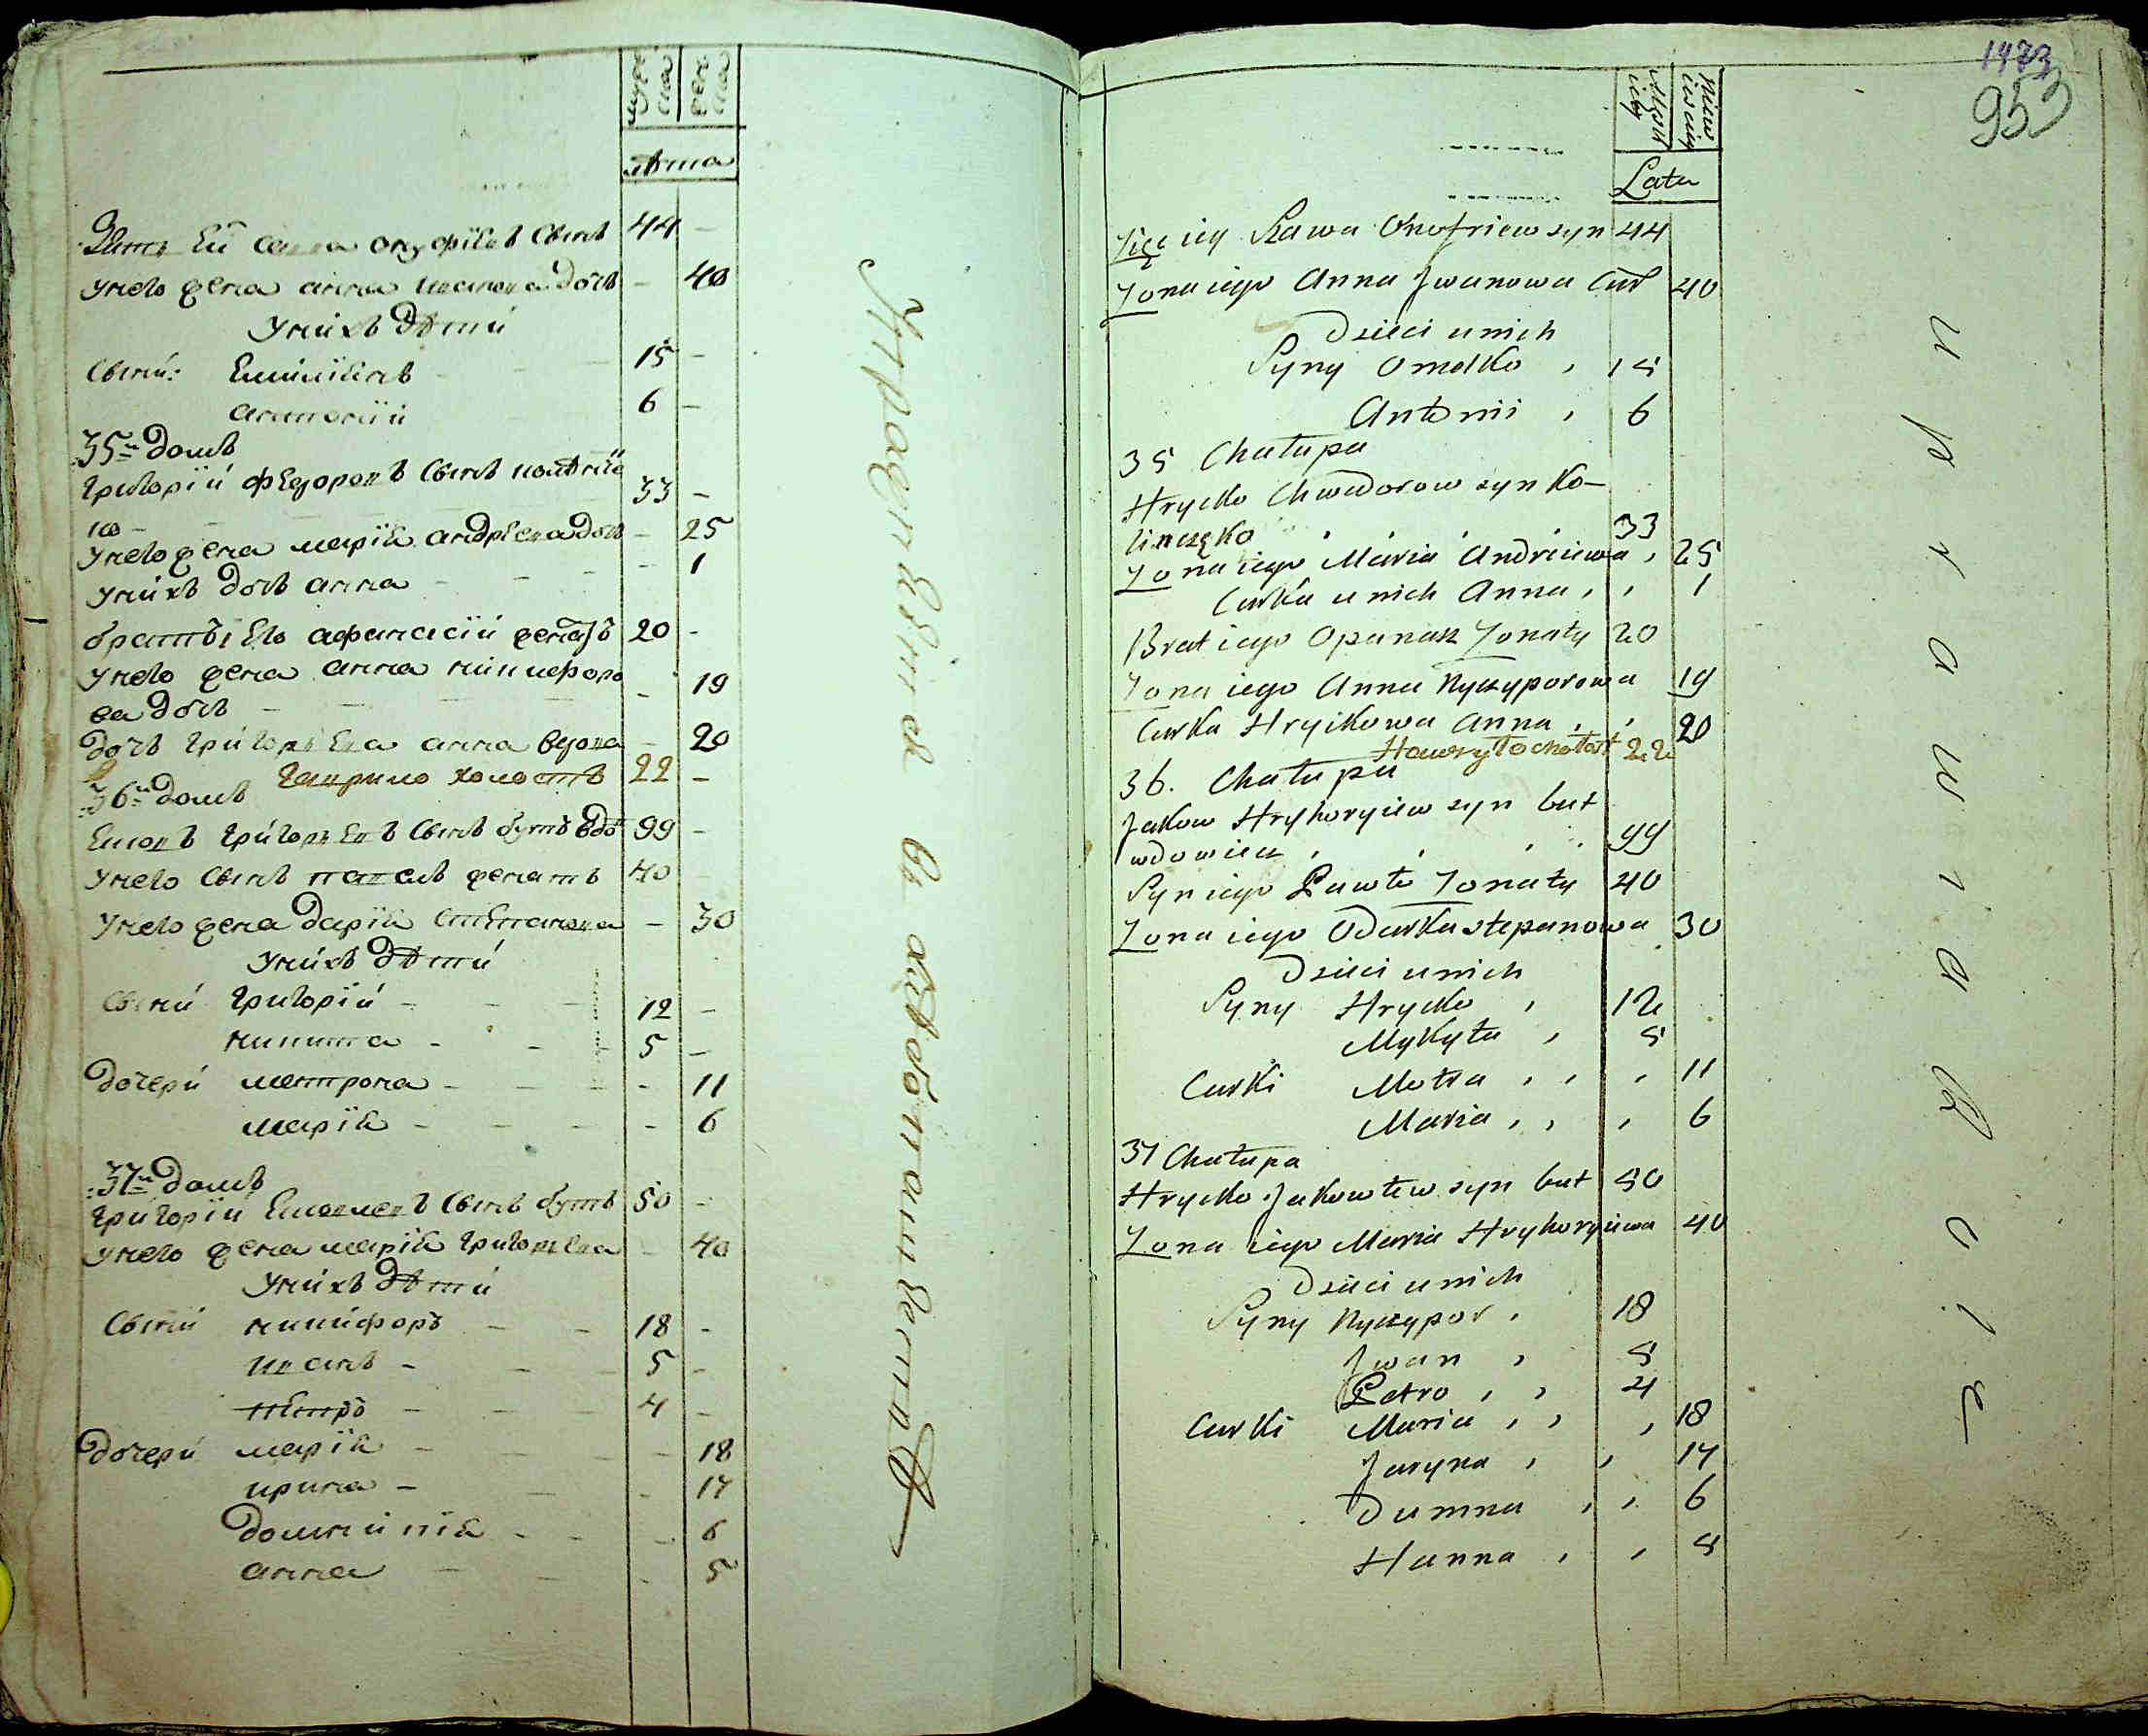 муже
ска
жен
ска
лѣта
Зять Ей Савва онуфріевъ Сынъ 44 –
Унего жена анна Иванова дочь – 40
Унихъ Дѣти
Сыни: Емиліянъ – 15 –
антоній 6 –
35й домъ
Григорій Федоровъ Сынъ колѣніче
ко – 33 –
Унего жена марія андрѣева дочь – 25
Унихъ дочь анна – – – – 1
братъ Его афанасій женатъ 20 –
Унего жена анна никифоро
ва дочь – – – – 19
дочь Григорьева анна вдова – 20
Гаврило холостъ 22 –
36й домъ
Яковъ Григорьевъ Сынъ бутъ вдо 99 –
Унего Сынъ павелъ женатъ 40
Унего жена дарія Степанова – 30
Унихъ Дѣти
Сыни Григорій – – 12 –
никита – – – 5 –
Дочери матрона – – – – 11
марія – – – – 6
37й домъ
Григорій Яковлевъ Сынъ бутъ 50 –
Унего жена марія Григорьева – 40
Унихъ Дѣти
Сыни никифоръ – – 18 –
Иванъ – – – 5 –
петръ – – – 4 –
Дочери марія – – – – 18
ирина – – – 17
домникія – – – 6
анна – – – 5
Упражненіе въ хлѣбопашествѣ
1473
953
Męsk
iey
Niew
iesciey
Lata
Zięć iey Sława Onofriew syn 44
Zona iego Anna Jwanowa Cur 40
Dzieci u nich
Syny Omelko , 15
Antonii , 6
35 Chałupa
Hrycko Chwedorow syn Ko–
liniczęko , , 33
Zona iego Maria Andrieiewa , 25
Curka u nich Anna , , 1
Brat iego Opanasz Zonaty 20
Zona iego Anna Nyczyporowa 19
Curka Hrycikowa Anna , , 20
Hawryło chołost 22
36. Chałupa
Jakow Hryhoryiew syn but
wdowiec , , , , 99
Syn iego Pawło Zonaty 40
Zona iego Odarka stepanowa 30
Dzieci u nich
Syny Hrycko , 12
Mykyta , 5
Curki Motra , , , 11
Maria , , , 6
37 Chałupa
Hrycko Jakowlew syn but 50
Zona iego Maria Hryhoryiewa 40
Dzieci u nich
Syny Nyczypor , 18
Jwan , 5
Petro , , 4
Curki Maria , , , 18
Jaryna , , 17
Dumna , , 6
Hanna , , 5
uprawia Role